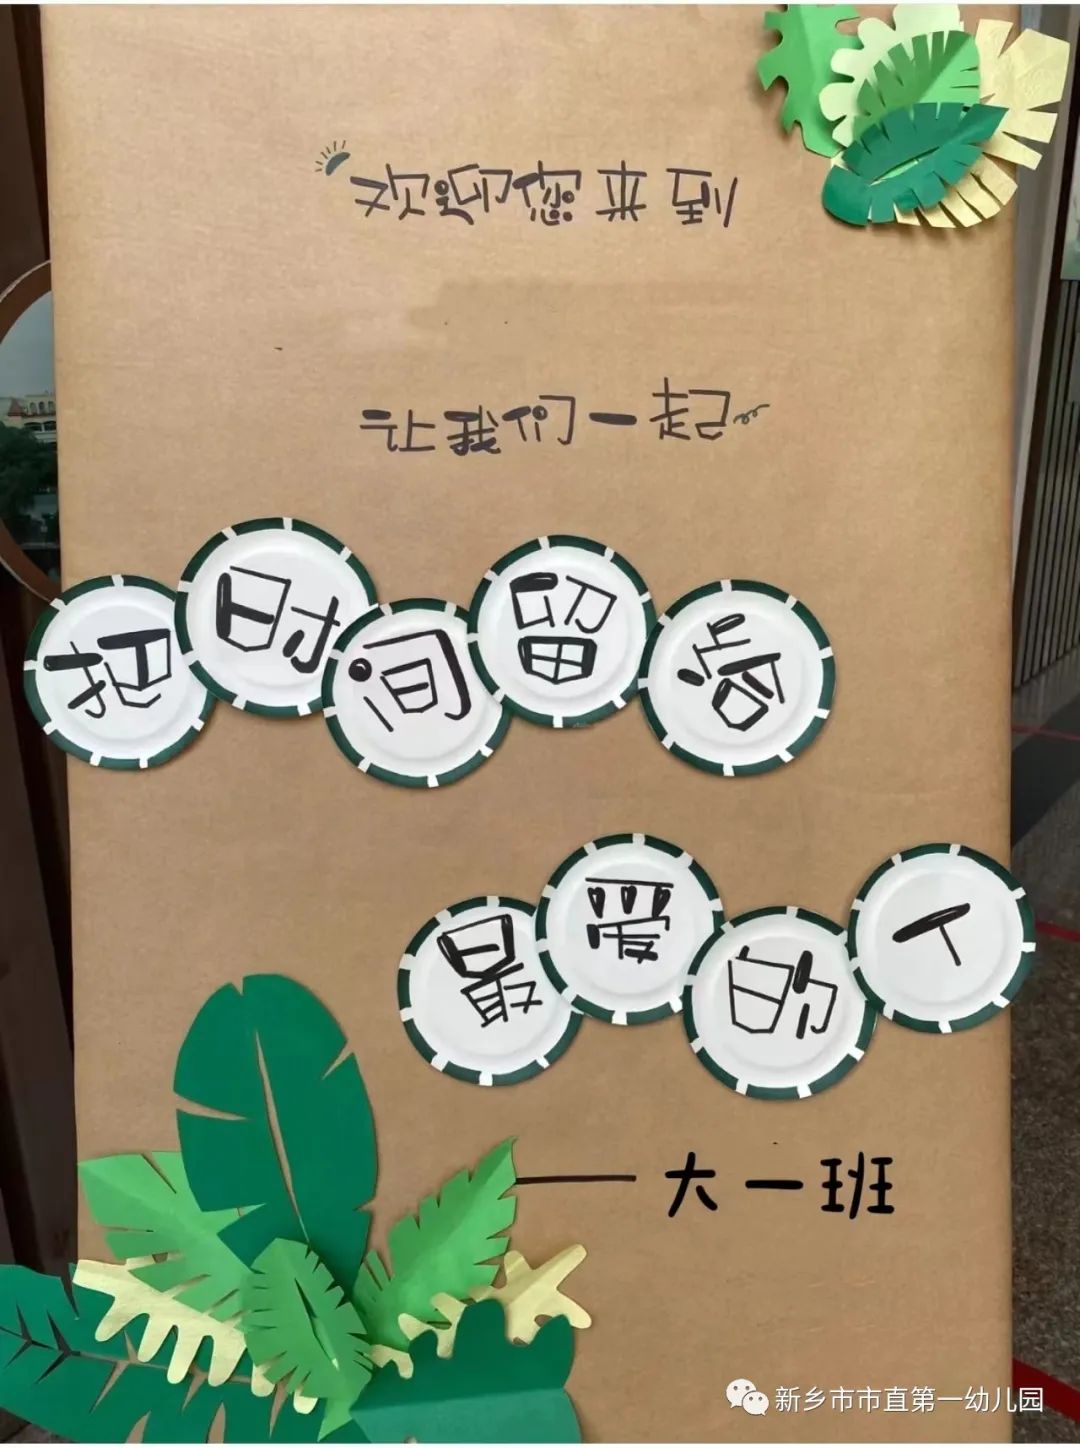 欢迎您来到
让我们一起
把时间留给
最爱的人
——大一班
新乡市市直第一幼儿园